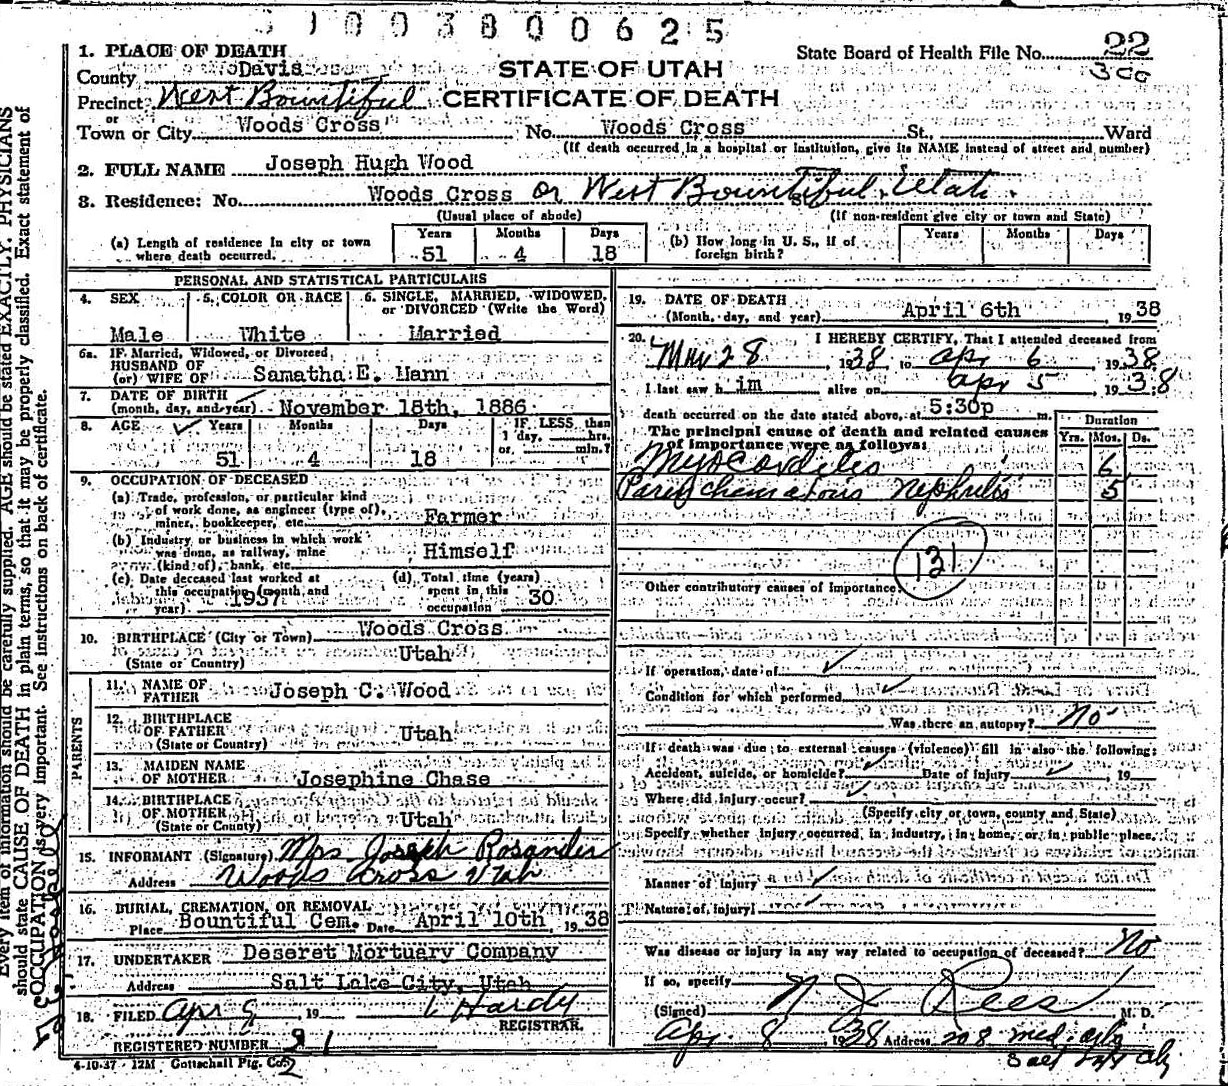 003800625
1. PLACE OF DEATH
State Board of Health File No. 22
300
County Davis
STATE OF UTAH
Precinct West Bountiful
CERTIFICATE OF DEATH
or
Town or City Woods Cross No. Woods Cross St., Ward
(If death occurred in a hospital or institution, give its NAME instead of street and number)
2. FULL NAME Joseph Hugh Wood
3. Residence: No. Woods Cross or West Bountiful, Utah.
(Usual place of abode) (If non-resident give city or town and State)
(a) Length of residence in city or town where death occurred. Years 51 Months 4 Days 18
(b) How long in U. S., if of foreign birth? Years Months Days
PERSONAL AND STATISTICAL PARTICULARS
4. SEX 5. COLOR OR RACE 6. SINGLE, MARRIED, WIDOWED,
or DIVORCED (Write the Word)
Male White Married
6a. IF Married, Widowed, or Divorced
HUSBAND OF
(or) WIFE OF Samatha E. Mann
7. DATE OF BIRTH
(month, day, and year) November 18th, 1886
8. AGE Years Months Days IF LESS than
1 day, hrs.
or min.?
51 4 18
9. OCCUPATION OF DECEASED
(a) Trade, profession, or particular kind
of work done, as engineer (type of),
miner, bookkeeper, etc. Farmer
(b) Industry or business in which work
was done, as railway, mine
(kind of), bank, etc. Himself
(c) Date deceased last worked at
this occupation (month and
year) 1937
(d) Total time (years)
spent in this
occupation 30
10. BIRTHPLACE (City or Town) Woods Cross
(State or Country) Utah
PARENTS
11. NAME OF
FATHER Joseph C. Wood
12. BIRTHPLACE
OF FATHER Utah
(State or Country)
13. MAIDEN NAME
OF MOTHER Josephine Chase
14. BIRTHPLACE
OF MOTHER Utah
(State or Country)
15. INFORMANT (Signature) Mrs Joseph Rosander
Address Woods Cross Utah
16. BURIAL, CREMATION, OR REMOVAL
Place Bountiful Cem. Date April 10th, 1938
17. UNDERTAKER Deseret Mortuary Company
Address Salt Lake City, Utah
18. FILED Apr 9, 19 Hardy
REGISTRAR.
REGISTERED NUMBER
4-10-37 - 12M Gottschall Ptg. Co.
19. DATE OF DEATH
(Month, day, and year) April 6th, 1938
20. I HEREBY CERTIFY, That I attended deceased from
Mar 28 1938, to Apr 6, 1938.
I last saw him alive on Apr 5, 1938
death occurred on the date stated above, at 5:30p m.
The principal cause of death and related causes
of importance were as follows:
Duration
Yrs. Mos. Ds.
Myocarditis 6
Parenchematous Nephritis 5
131
Other contributory causes of importance
If operation, date of
Condition for which performed
Was there an autopsy? No
If death was due to external causes (violence) fill in also the following:
Accident, suicide, or homicide? Date of injury , 19
Where did injury occur?
(Specify city or town, county and State)
Specify whether injury occurred in industry, in home, or in public place.
Manner of injury
Nature of injury
Was disease or injury in any way related to occupation of deceased? No
If so, specify
(Signed) Rees M. D.
Apr. 8 1938 Address 208 Med. Arts
Salt City
Every item of information should be carefully supplied. AGE should be stated EXACTLY. PHYSICIANS
should state CAUSE OF DEATH in plain terms, so that it may be properly classified. Exact statement of
OCCUPATION is very important. See instructions on back of certificate.